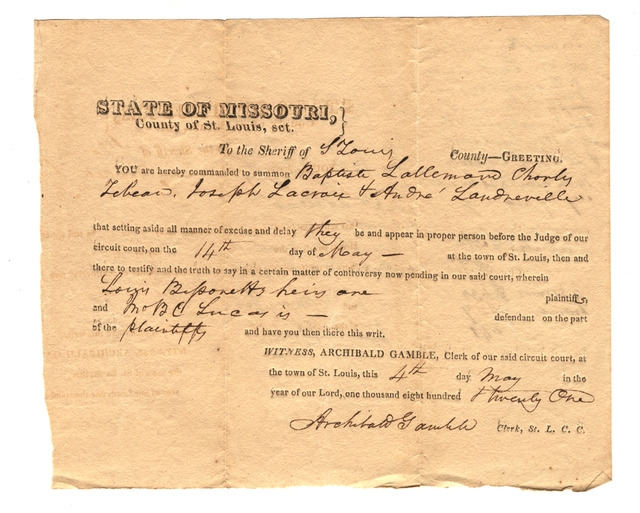 STATE OF MISSOURI,
County of St. Louis, sct.
To the Sheriff of St Louis County—GREETING.
YOU are hereby commanded to summon Baptiste Lallemand Charles
Joseph Lacroix & André Landreville
that setting aside all manner of excuse and delay they be and appear in proper person before the Judge of our
circuit court, on the 14th day of May — at the town of St. Louis, then and
there to testify and the truth to say in a certain matter of controversy now pending in our said court, wherein
Louis Bissonetts heirs are plaintiffs,
and B C Lucas is — defendant on the part
of the plaintiffs and have you then there this writ.
WITNESS, ARCHIBALD GAMBLE, Clerk of our said circuit court, at
the town of St. Louis, this 4th day May in the
year of our Lord, one thousand eight hundred & twenty One
Archibald Gamble Clerk, St. L. C. C.